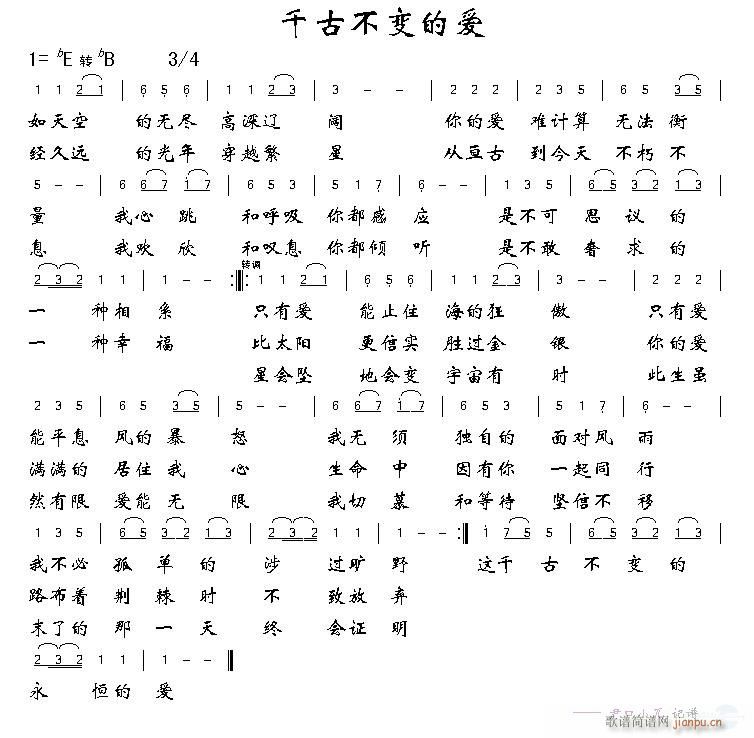 千古不变的爱
1= ᵇE 转 ᵇB 3/4
1 1 2 1 | 6 5 6 | 1 1 2 3 | 3 - - | 2 2 2 | 2 3 5 | 6 5 3 5 |
如天空 的无尽 高深辽 阔 你的爱 难计算 无法衡
经久远 的光年 穿越繁 星 从亘古 到今天 不朽不
5 - - | 6 6 7 1 7 | 6 5 3 | 5 1 7 | 6 - - | 1 3 5 | 6 5 3 2 1 3 |
量 我心跳 和呼吸 你都感应 是不可 思议的
息 我欢欣 和叹息 你都倾听 是不敢 奢求的
2 3 2 1 1 | 1 - - :‖: 转调 1 1 2 1 | 6 5 6 | 1 1 2 3 | 3 - - | 2 2 2 |
一 种相系 只有爱 能止住 海的狂 傲 只有爱
一 种幸福 比太阳 更信实 胜过金 银 你的爱
星会坠 地会变 宇宙有 时 此生虽
2 3 5 | 6 5 3 5 | 5 - - | 6 6 7 1 7 | 6 5 3 | 5 1 7 | 6 - - |
能平息 风的暴 怒 我无须 独自的 面对风 雨
满满的 居住我 心 生命中 因有你 一起同 行
然有限 爱能无 限 我切慕 和等待 坚信不 移
1 3 5 | 6 5 3 2 1 3 | 2 3 2 1 1 | 1 - - :‖ 1 7 5 | 6 5 3 2 1 3 |
我不必 孤单的 涉 过旷野 这千古不变的
路布着 荆棘时 不 致放弃
末了的 那一天 终 会证明
2 3 2 1 1 | 1 - - ‖
永 恒的爱
记谱
歌谱简谱网
jianpu.cn